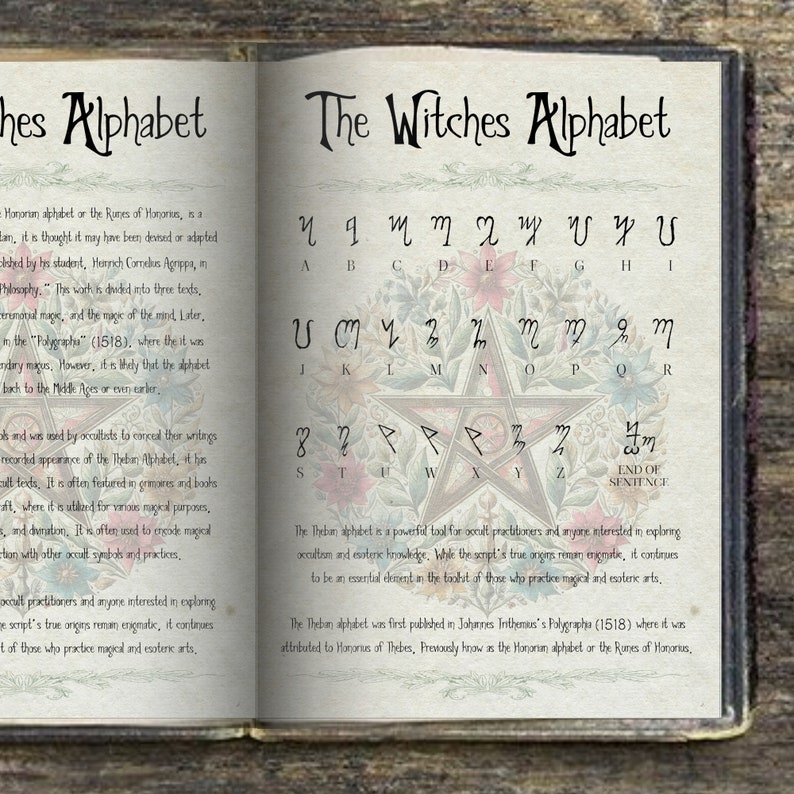 hes Alphabet
Honorian alphabet or the Runes of Honorius, is a
tain. it is thought it may have been devised or adapted
blished by his student, Heinrich Cornelius Agrippa, in
Philosophy." This work is divided into three texts,
ceremonial magic, and the magic of the mind. Later,
in the "Polygraphia" (1518), where the it was
endary magus. However, it is likely that the alphabet
back to the Middle Ages or even earlier.
ols and was used by occultists to conceal their writings
recorded appearance of the Theban Alphabet, it has
cult texts. It is often featured in grimoires and books
raft, where it is utilized for various magical purposes,
s, and divination. It is often used to encode magical
ction with other occult symbols and practices.
occult practitioners and anyone interested in exploring
he script's true origins remain enigmatic, it continues
t of those who practice magical and esoteric arts.
The Witches Alphabet
A B C D E F G H I
J K L M N O P Q R
S T U W X Y Z END OF
SENTENCE
The Theban alphabet is a powerful tool for occult practitioners and anyone interested in exploring
occultism and esoteric knowledge. While the script's true origins remain enigmatic, it continues
to be an essential element in the toolkit of those who practice magical and esoteric arts.
The Theban alphabet was first published in Johannes Trithemius's Polygraphia (1518) where it was
attributed to Honorius of Thebes. Previously know as the Honorian alphabet or the Runes of Honorius.